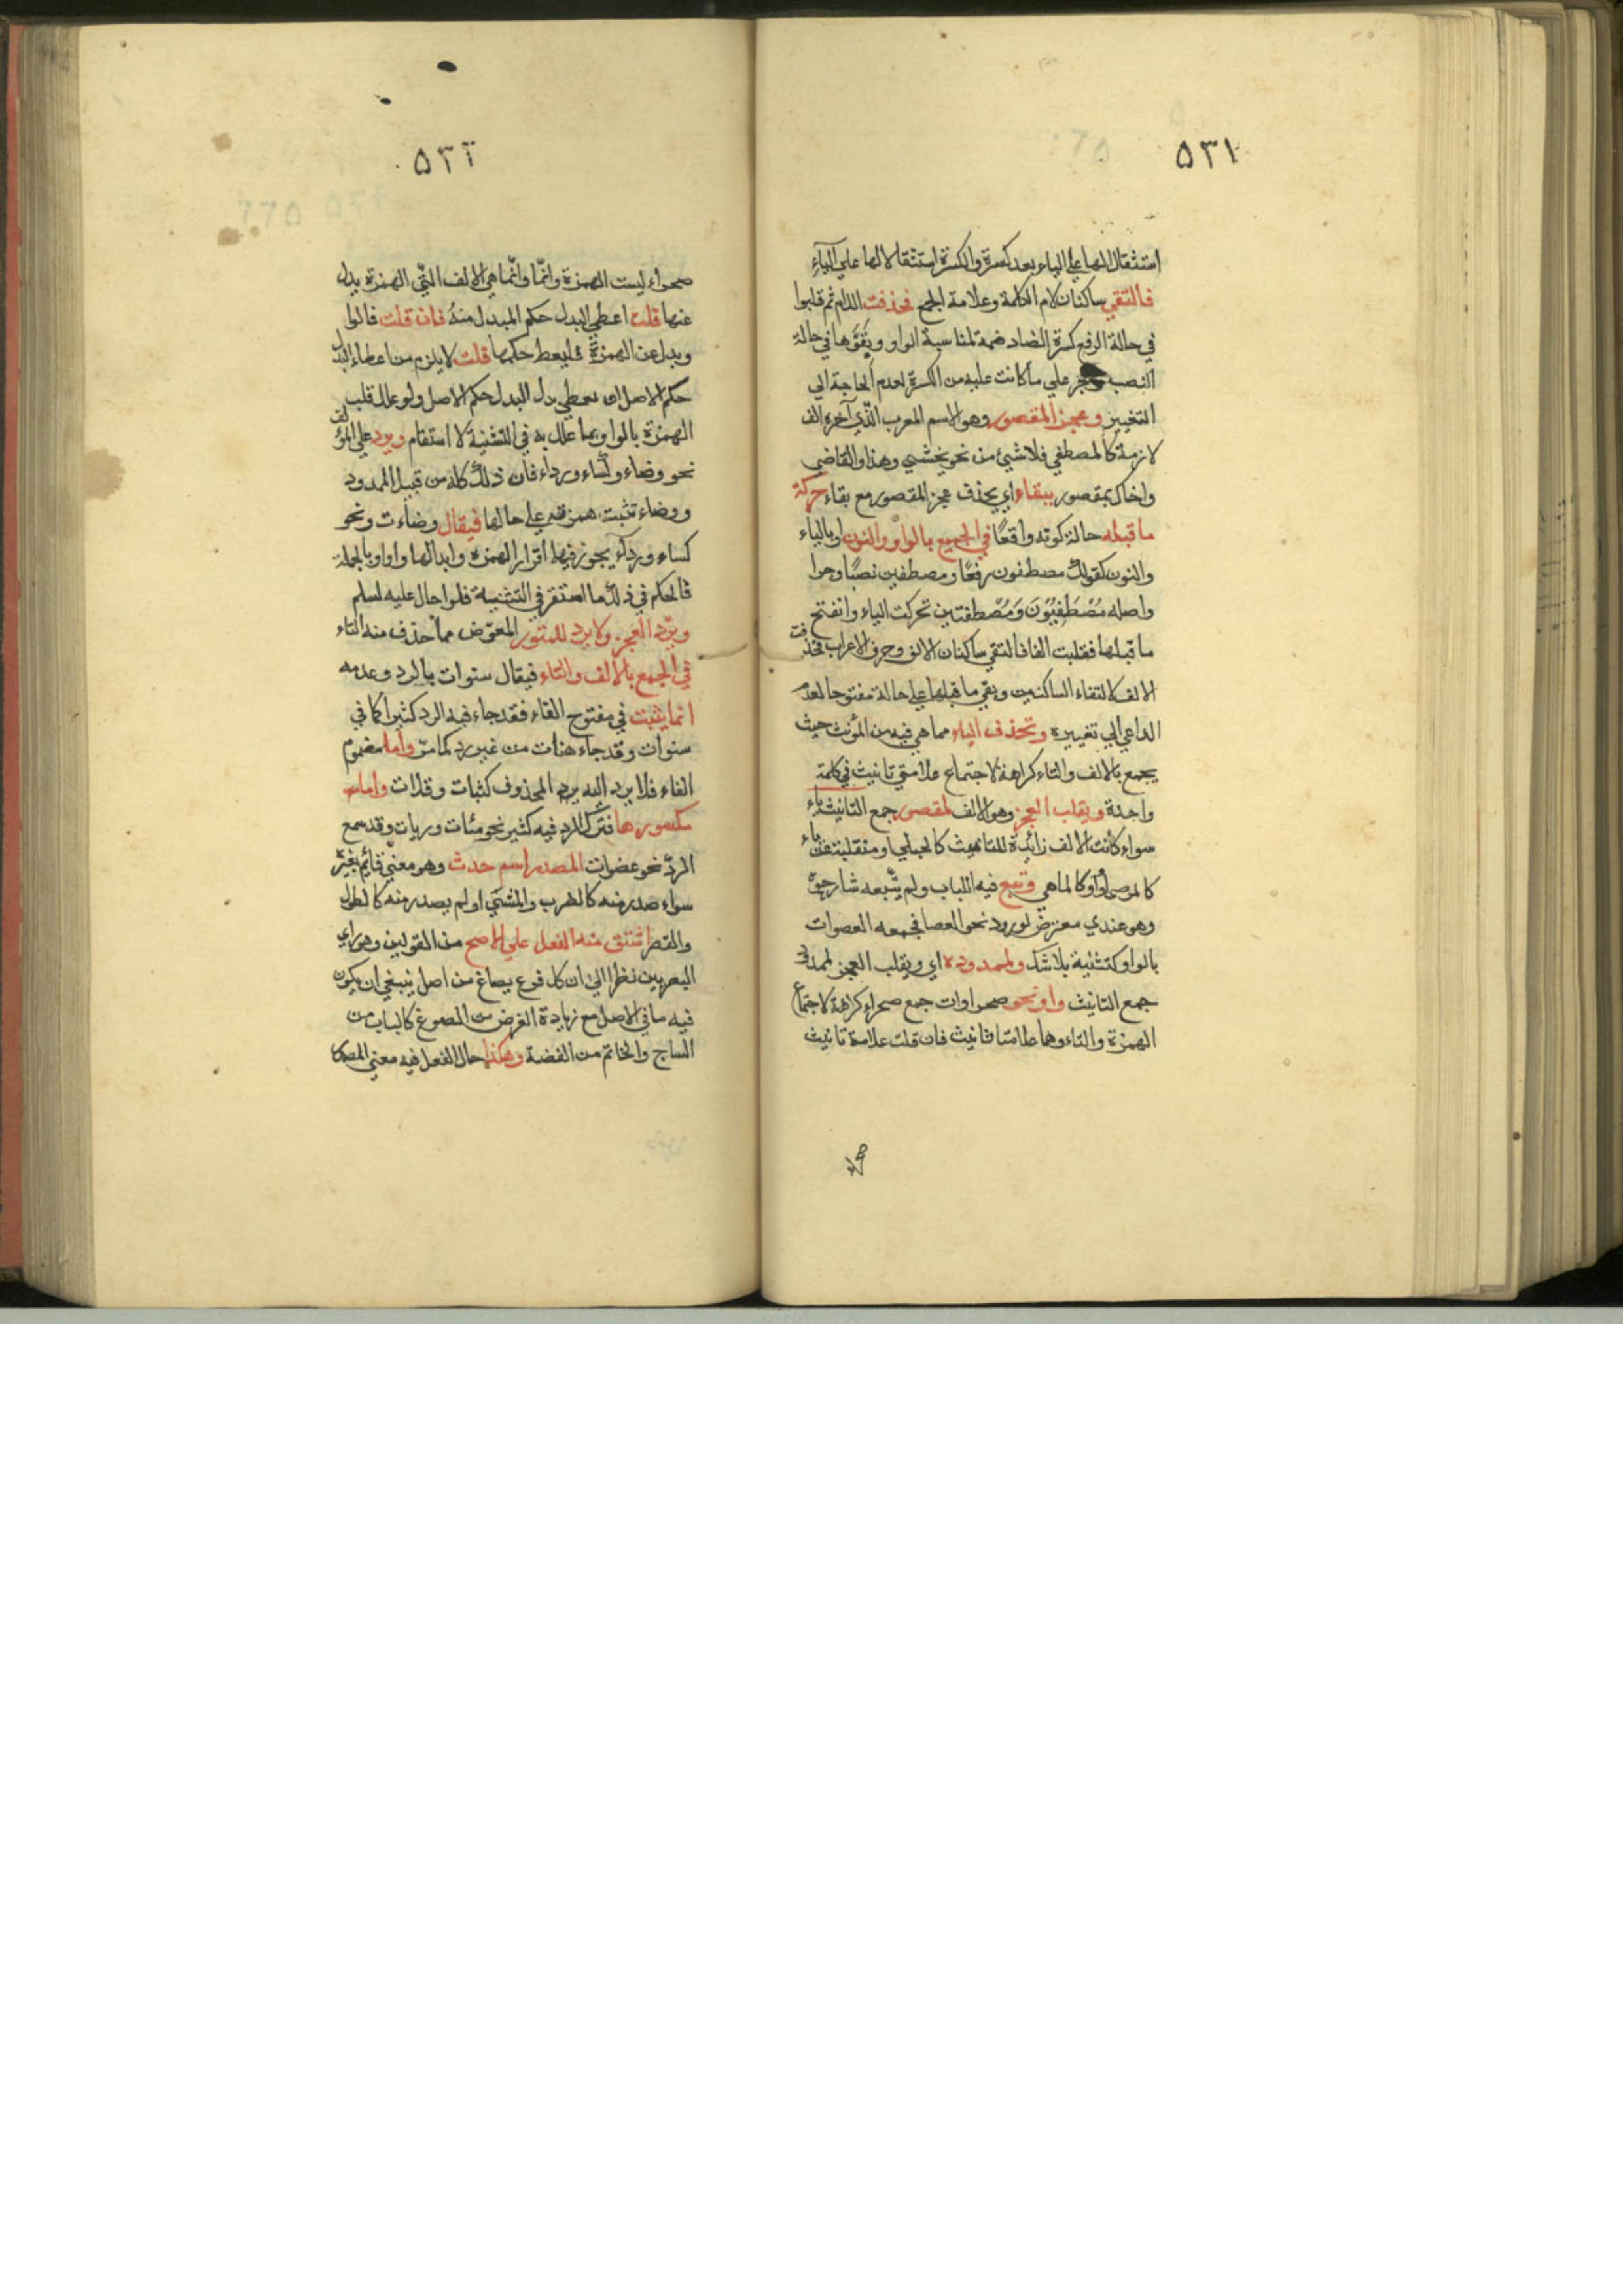 ٥٣١
استثقالا لها علي الياء بعد كسرة والكسرة استثقالا لها علي الياء
فالتقي ساكنان لام الكلمة وعلامة الجمع فحذفت اللام ثم قلبوا
في حالة الرفع كسرة الضاد ضمة لمناسبة الواو وبقوها في حالة
النصب والجر علي ما كانت عليه من الكسرة لعدم الحاجة الي
التغيير وعجز المقصور وهو الاسم المعرب الذي آخره الف
لازمة كالمصطفي فلا شيئ من نحو يخشي وهذا والقاضي
واخاك بمقصور ببقاء اي يحذف عجز المقصور مع بقاء حركة
ما قبله حالة كونه واقعًا في الجمع بالواو والنون او بالياء
والنون كقولك مصطفون رفعًا ومصطفين نصبًا وجرا
واصله مُصْطَفِيُوُنَ وَمُصْطفيين تحركت الياء وانفتح
ما قبلها فقلبت الفا فالتقي ساكنان الالف وحرف الاعراب فحذفت
الالف لالتقاء الساكنين وبقي ما قبلها علي حاله مفتوحا لعدم
الداعي الي تغييره وتحذف التاء مما هي فيه من المؤنث حيث
يجمع بالالف والتاء كراهة لاجتماع علامتي تانيث في كلمة
واحدة ويقلب العجز وهو الالف لمقصور جمع التانيث ياء
سواء كانت الالف زائدة للتانيث كالحبلي او منقلبة عن ياء
كالموصي او واو كالملهي وتبع فيه اللباب ولم يتبعه شارحوه
وهو عندي معترض لورود نحو العصا فجمعه العصوات
بالواو كتثنية بلا شك ولممدوده اي ويقلب العجز لممدود
جمع التانيث واو نحو صحراوات جمع صحراء كراهة لاجتماع
الهمزة والتاء وهما علامتا تانيث فان قلت علامة تانيث
٥٣٢
صحراء ليست الهمزة وانّما وانّما هي الالف التّي الهمزة بدل
عنها قلت اعطي البدل حكم المبدل منهُ فان قلت فالوا
و بدل عن الهمزة فليعط حكمها قلت لا يلزم من اعطاء البدل
حكم الاصل ان يعطي بدل البدل حكم الاصل ولو علل قلب
الهمزة بالواو بما علل به في التثنية لا استقام ويرد علي المؤلف
نحو وضاء وكساء ورداء فان ذلك كله من قبيل الممدود
ووضاء تثبت همزته علي حالها فيقال وضاءت ونحو
كساء ورداء يجوز فيها اقرار الهمزة وابدالها واوا وبالجملة
فالحكم في ذلك ما استقر في التثنية فلو احال عليه لسلم
ويرّد العجز ولا يرد للمبتور المعوّض مما حذف منه التاء
في الجمع بالالف والتاء فيقال سنوات بالرد وعدمه
انما يثبت في مفتوح الفاء فقد جاء فيه الرد كثيرا كما في
سنوات وقد جاء هنات من غير رد كما مرّ واما مضموم
الفاء فلا يرد اليه يرد المحذوف كثبات وقلات واما
مكسورها فترك الرد فيه كثير نحو مئات وريات وقد سمع
الردّ نحو عضوات المصدر اسم حدث وهو معنيّ قائم بغيره
سواء صدر منه كالضرب والمشي او لم يصدر منه كالطول
والقصر اشتق منه الفعل علي الاصح من القولين وهو راي
البصريين نظرا الي ان كل فرع يصاغ من اصل ينبغي ان يكون
فيه ما في الاصل مع زيادة الغرض من المصوغ كالباب من
الساج والخاتم من الفضة وهكذا حال الفعل فيه معني المصدر